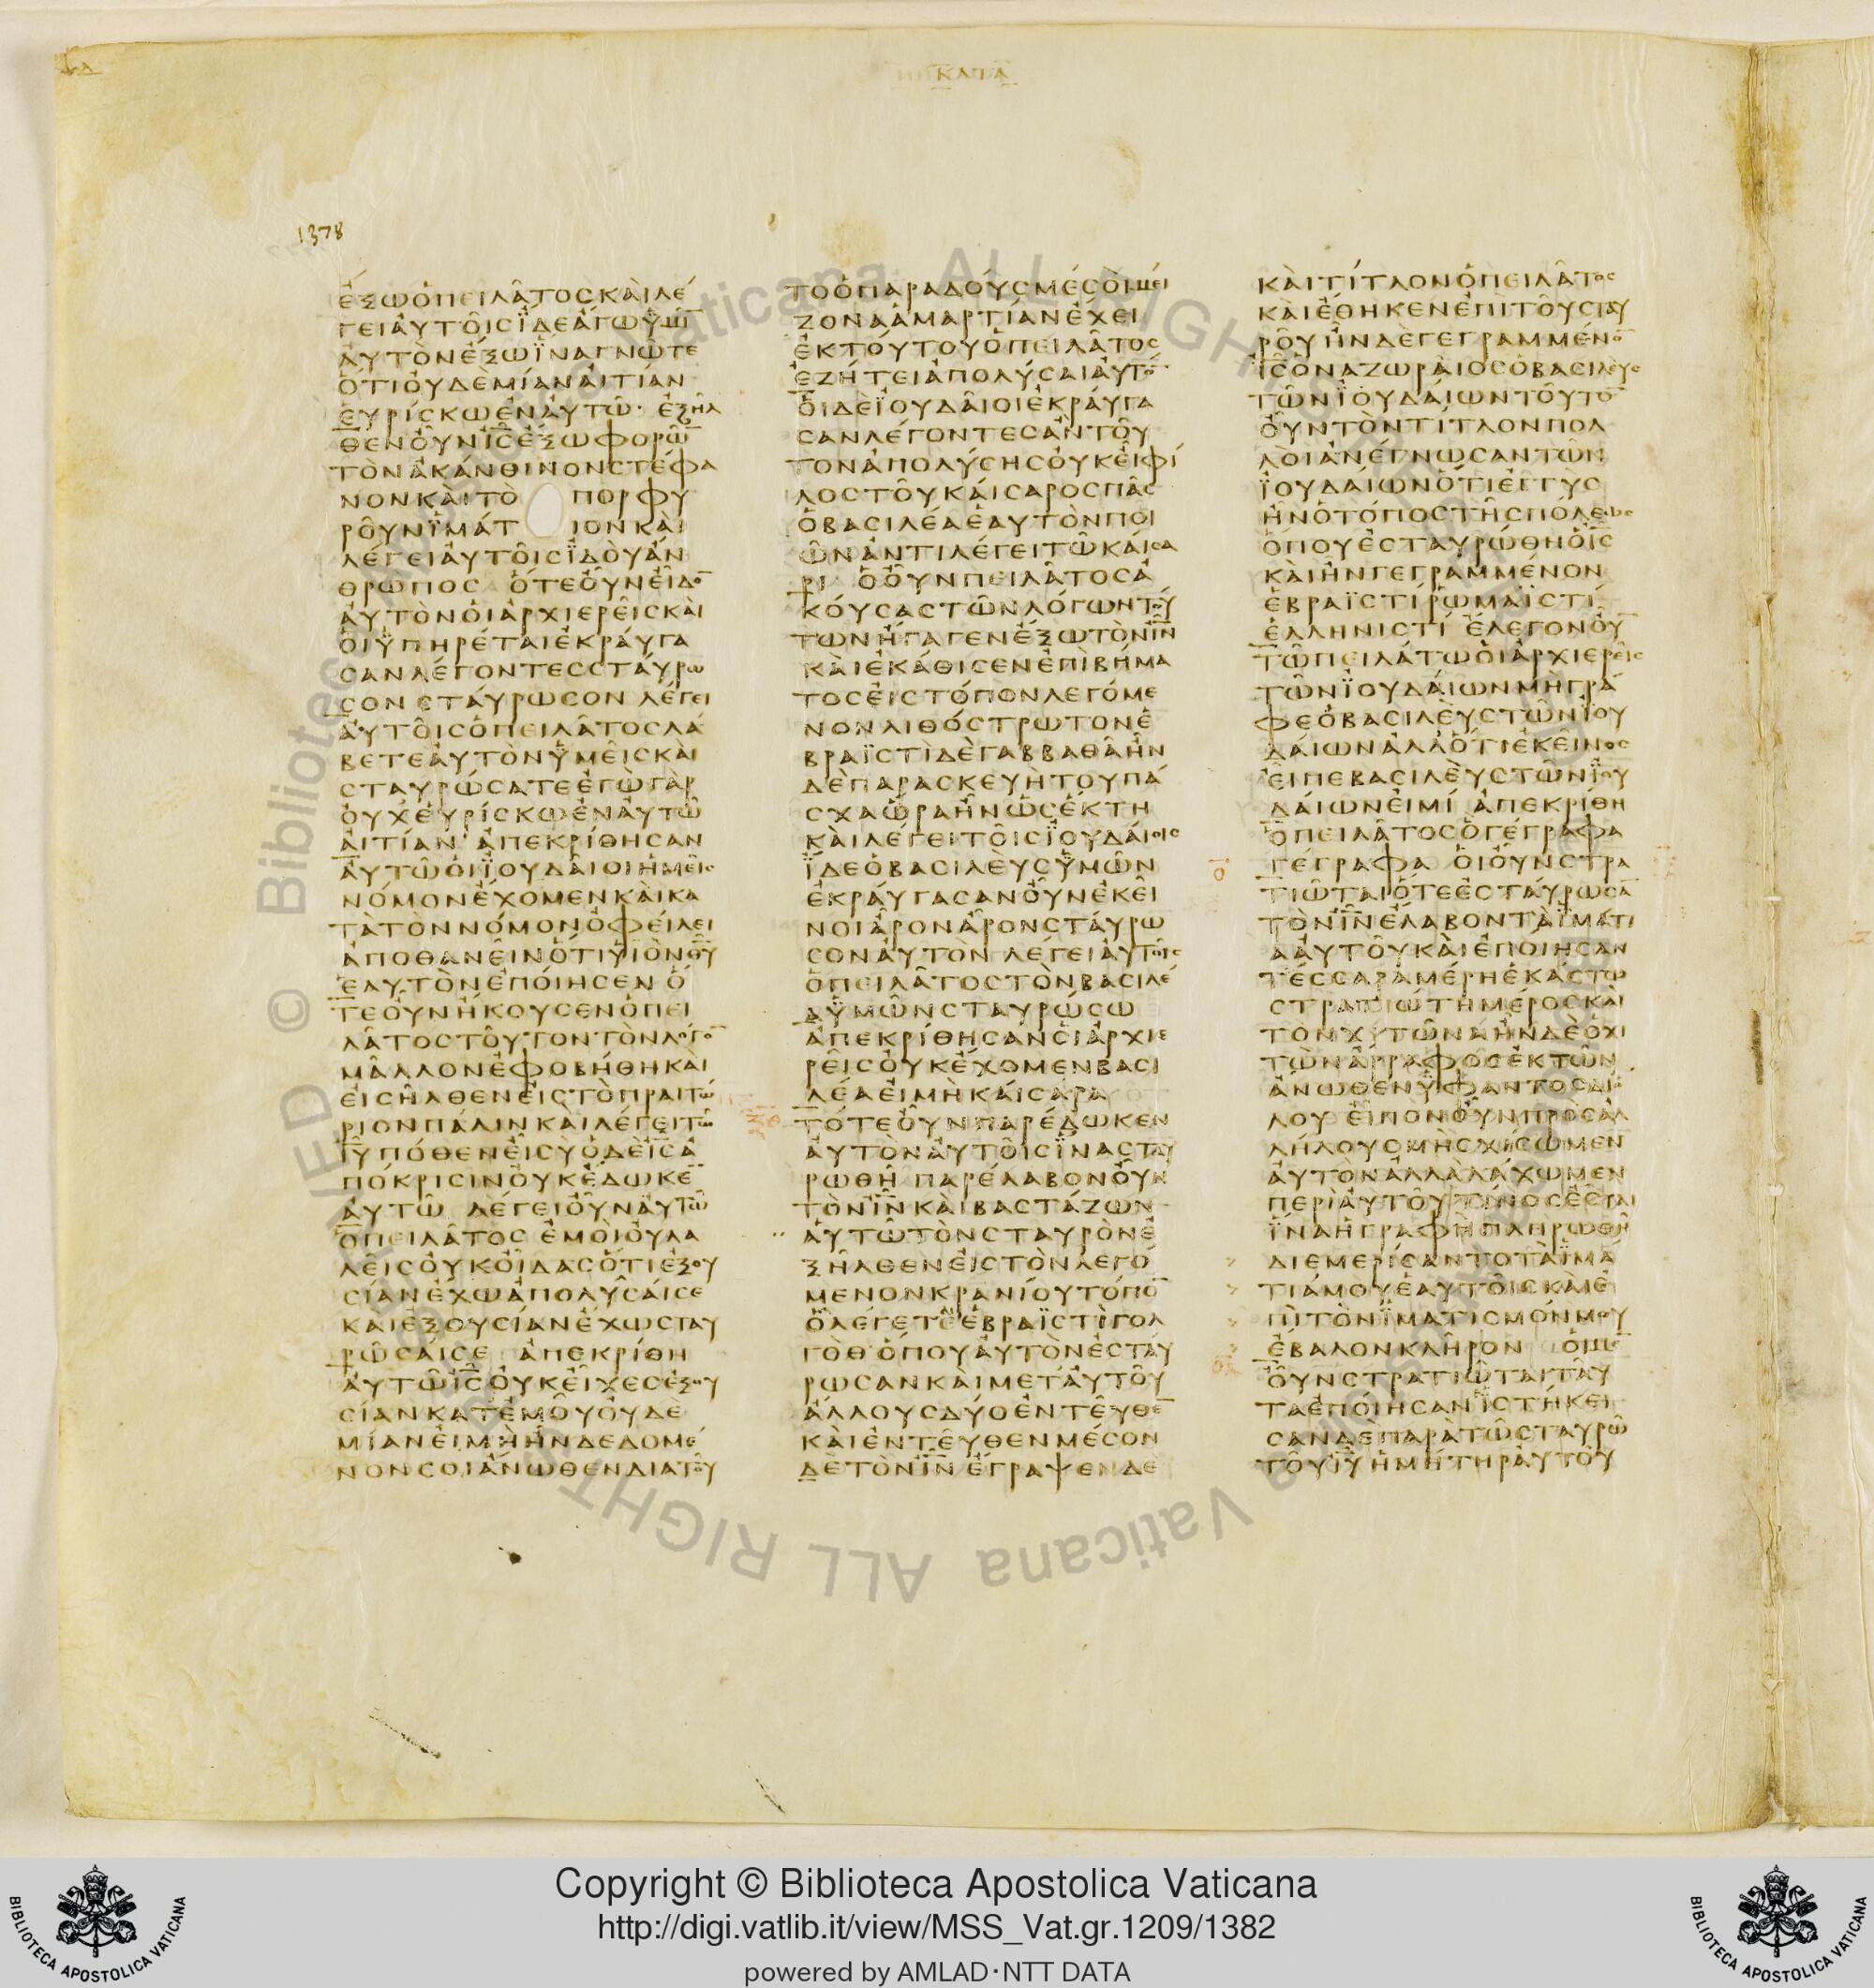 ΚΑΤΑ
1378
ἔξωὁπειλᾶτοσκαὶλέ
γειἀυτοῖσἴδεἄγωὑμῖ̅
ἀυτὸνἔξωἵναγνῶτε
ὅτιοὐδὲμίαναἰτίαν
ἑυρίσκωἐναυτῶ· ἐξῆλ
θενοὖνι̅σ̅ἔξωφορῶ̅
τὸνἀκάνθινονστέφα
νονκαὶτὸ πορφυ
ροῦνἱμάτ ιονκαὶ
λέγειἀυτοῖσἰδοὺἄν
θρωπος ὅτεοὖνεἶδο̅
ἀυτὸνοἱἀρχιερεῖσκαὶ
οἱὑπηρέταιἐκράυγα
σανλέγοντεσστάυρω
σονστάυρωσον λέγει
ἀυτοῖσὁπειλᾶτοσλά
βετεἀυτὸνὑμεῖσκαὶ
σταυρώσατεἐγὼγὰρ
ὀυχἑυρίσκωἐνἀυτῶ
ἀιτίαν· ἀπεκρίθησαν
ἀυτῶὁιἰουδαῖοιἡμεῖσ
νόμονἔχομενκαὶκα
τὰτὸννόμονὀφείλει
ἀποθανεῖνὅτιὑιὸνθ̅υ̅
ἑαυτὸνἐποίησεν ὅ
τεοὖνἤκουσενὁπει
λᾶτοστοῦτοντὸνλόγο̅
μᾶλλονἐφοβήθηκαὶ
εἰσῆλθενεἰστὸπραιτώ
ριονπάλινκαὶλέγειτῶ
ι̅υ̅πόθενεἶσὺὁδὲι̅σ̅ἀ
πόκρισινοὐκἔδωκε̅
ἀυτῶ λέγειοὖνἀυτῶ
ὁπειλᾶτος ἐμοὶοὐλα
λεῖσοὐκοἶδασὅτιἐξου
σίανἔχωἀπολῦσάισε
καὶἐξουσίανἔχωσταυ
ρῶσάισε ἀπεκρίθη
ἀυτῶι̅σ̅οὐκεἶχεσἐξου
σίανκατἐμοῦοὐδε
μίανεἰμὴἦνδεδομέ
νονσοιἄνωθενδιατοῦ
τοὁπαραδούσμέσὸιμεί
ζοναἁμαρτίανἔχει
ἐκτούτουὁπειλᾶτοσ
ἐζήτειἀπολύσαιἀυτό̅
ὁιδὲἰουδαῖοιἐκράυγα
σανλέγοντεσἐὰντοῦ
τονἀπολύσησοὐκεἶφί
λοστοῦκαίσαροσπᾶσ
ὁβασιλέαἑαυτὸνποι
ῶνἀντιλέγειτῶκάισα
ρι ὁοὖνπειλᾶτοσἀ
κούσαστῶνλόγωντού
τωνἤγαγενἔξωτὸνι̅ν̅
καὶἐκάθισενἐπὶβήμα
τοσεἰστόπονλεγόμε
νονλιθόστρωτονἑ
βραϊστὶδὲγαββαθᾶἦν
δὲπαρασκευὴτουπά
σχαὥραἦνὡσἕκτη
καὶλέγειτοῖσἰουδάιοισ
ἴδεὁβασιλεὺσὑμῶν
ἐκράυγασανοὖνἐκεῖ
νοιἆρονἆρονστάυρω
σονἀυτὸν λέγειἀυτοῖσ
ὁπειλᾶτοστὸνβασιλέ
αὑμῶνσταυρώσω
ἀπεκρίθησανὁιἀρχιε
ρεῖσοὐκἔχομενβασι
λέαεἰμὴκάισαρα
τότεοὖνπαρέδωκεν
ἀυτὸνἀυτοῖσἵνασταυ
ρωθῆ παρέλαβονοὖν
τὸνι̅ν̅καὶβαστάζων
ἁυτῶτὸνσταυρὸνἐ
ξῆλθενεἰστὸνλεγό
μενονκρανίουτόπο̅
ὃλέγετεἑβραϊστὶγολ
γὸθὅπουἀυτὸνἐσταύ
ρωσανκαὶμετἀυτοῦ
ἄλλουσδύοἐντεῦθε̅
καὶἐντεῦθενμέσον
δὲτὸνι̅ν̅ ἔγραψενδὲ
καὶτίτλονὁπειλᾶτοσ
καὶἔθηκενἐπὶτοῦσταυ
ροῦἦνδὲγεγραμμένο̅
ι̅σ̅ὁναζωραῖοσὁβασιλεὺσ
τῶνἰουδάιωντοῦτο̅
οὖντὸντίτλονπολ
λὸιἀνέγνωσαντῶν
ἰουδάιωνὅτιἐγγὺσ
ἦνὁτόποστῆσπόλεωσ
ὅπουἐσταυρώθηὁι̅σ̅
καὶἦνγεγραμμένον
ἑβραϊστὶρωμαϊστὶ
ἑλληνιστὶ ἔλεγονοὖ̅
τῶπειλάτωὁιἀρχιερεῖσ
τῶνἰουδάιωνμὴγρά
φεὁβασιλεὺστῶνἰου
δάιωνἀλλὅτιἐκεῖνοσ
εἶπεβασιλεὺστῶνἰου
δάιωνεἰμί ἀπεκρίθη
ὁπειλᾶτοσὃγέγραφα
γέγραφα ὁιοὖνστρα
τιῶταιὅτεἐστάυρωσα̅
τὸνι̅ν̅ἔλαβοντὰἱμάτι
αἀυτοῦκαὶἐποίησαν
τέσσαραμέρηἑκάστω
στρατιώτημέροσκαὶ
τὸνχιτῶναἦνδὲὁχι
τὼνἄρραφοσἐκτῶν
ἄνωθενὑφαντὸσδιὅ
λου εἶπονοὖνπρὸσἀλ
λήλουσμὴσχίσωμεν
ἀυτὸνἀλλὰλάχωμεν
περὶἀυτοῦτίνοσἔσται
ἵναἡγραφὴπληρωθῆ
διεμερίσαντοτὰἱμά
τιάμουἑαυτοῖσκαὶἐ
πὶτὸνἱματισμόνμου
ἔβαλονκλῆρον ὁιμὲ̅
οὖνστρατιῶταιταῦ
ταἐποίησανἱστήκει
σανδὲπαρὰτῶσταυρῶ
τοῦι̅υ̅ἡμήτηρἀυτοῦ
Copyright © Biblioteca Apostolica Vaticana
http://digi.vatlib.it/view/MSS_Vat.gr.1209/1382
powered by AMLAD·NTT DATA
BIBLIOTECA APOSTOLICA VATICANA
BIBLIOTECA APOSTOLICA VATICANA